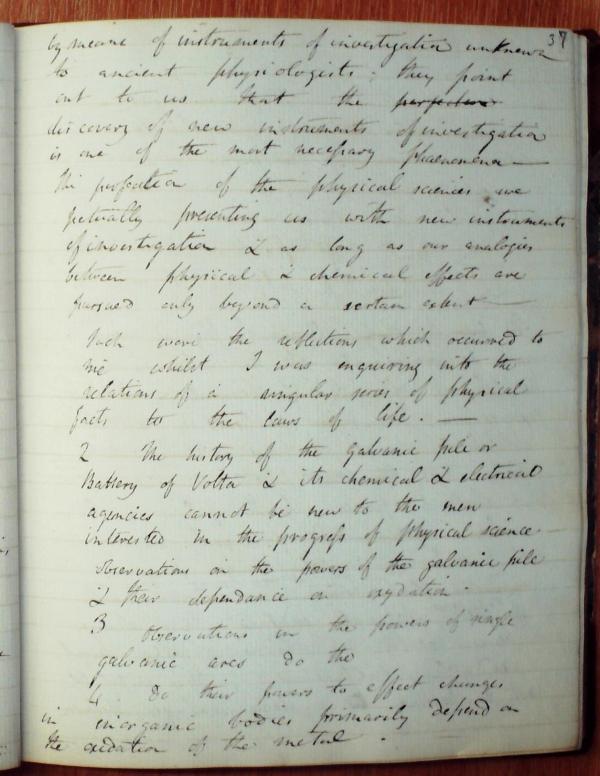 37
by means of instruments of investigation unknown
to ancient physiologists: they point
out to us that the perfection
discovery of new instruments of investigation
is one of the most necessary phaenomena —
The perfection of the physical sciences are
pertually presenting us with new instruments
of investigation & as long as our analogies
between physical & chemical effects are
pursued only beyond a certain extent —
Such were the reflections which occurred to
me whilst I was enquiring into the
relations of a singular series of physical
facts to the laws of life. —
2 The history of the galvanic pile or
Battery of Volta & its chemical & electrical
agencies cannot be new to the men
interested in the progress of physical science
observations on the powers of the galvanic pile
& their dependance on oxydation.
3 Observations on the powers of single
galvanic arcs do the
4 Do their powers to effect changes
in inorganic bodies primarily depend on
the oxidation of the metal.